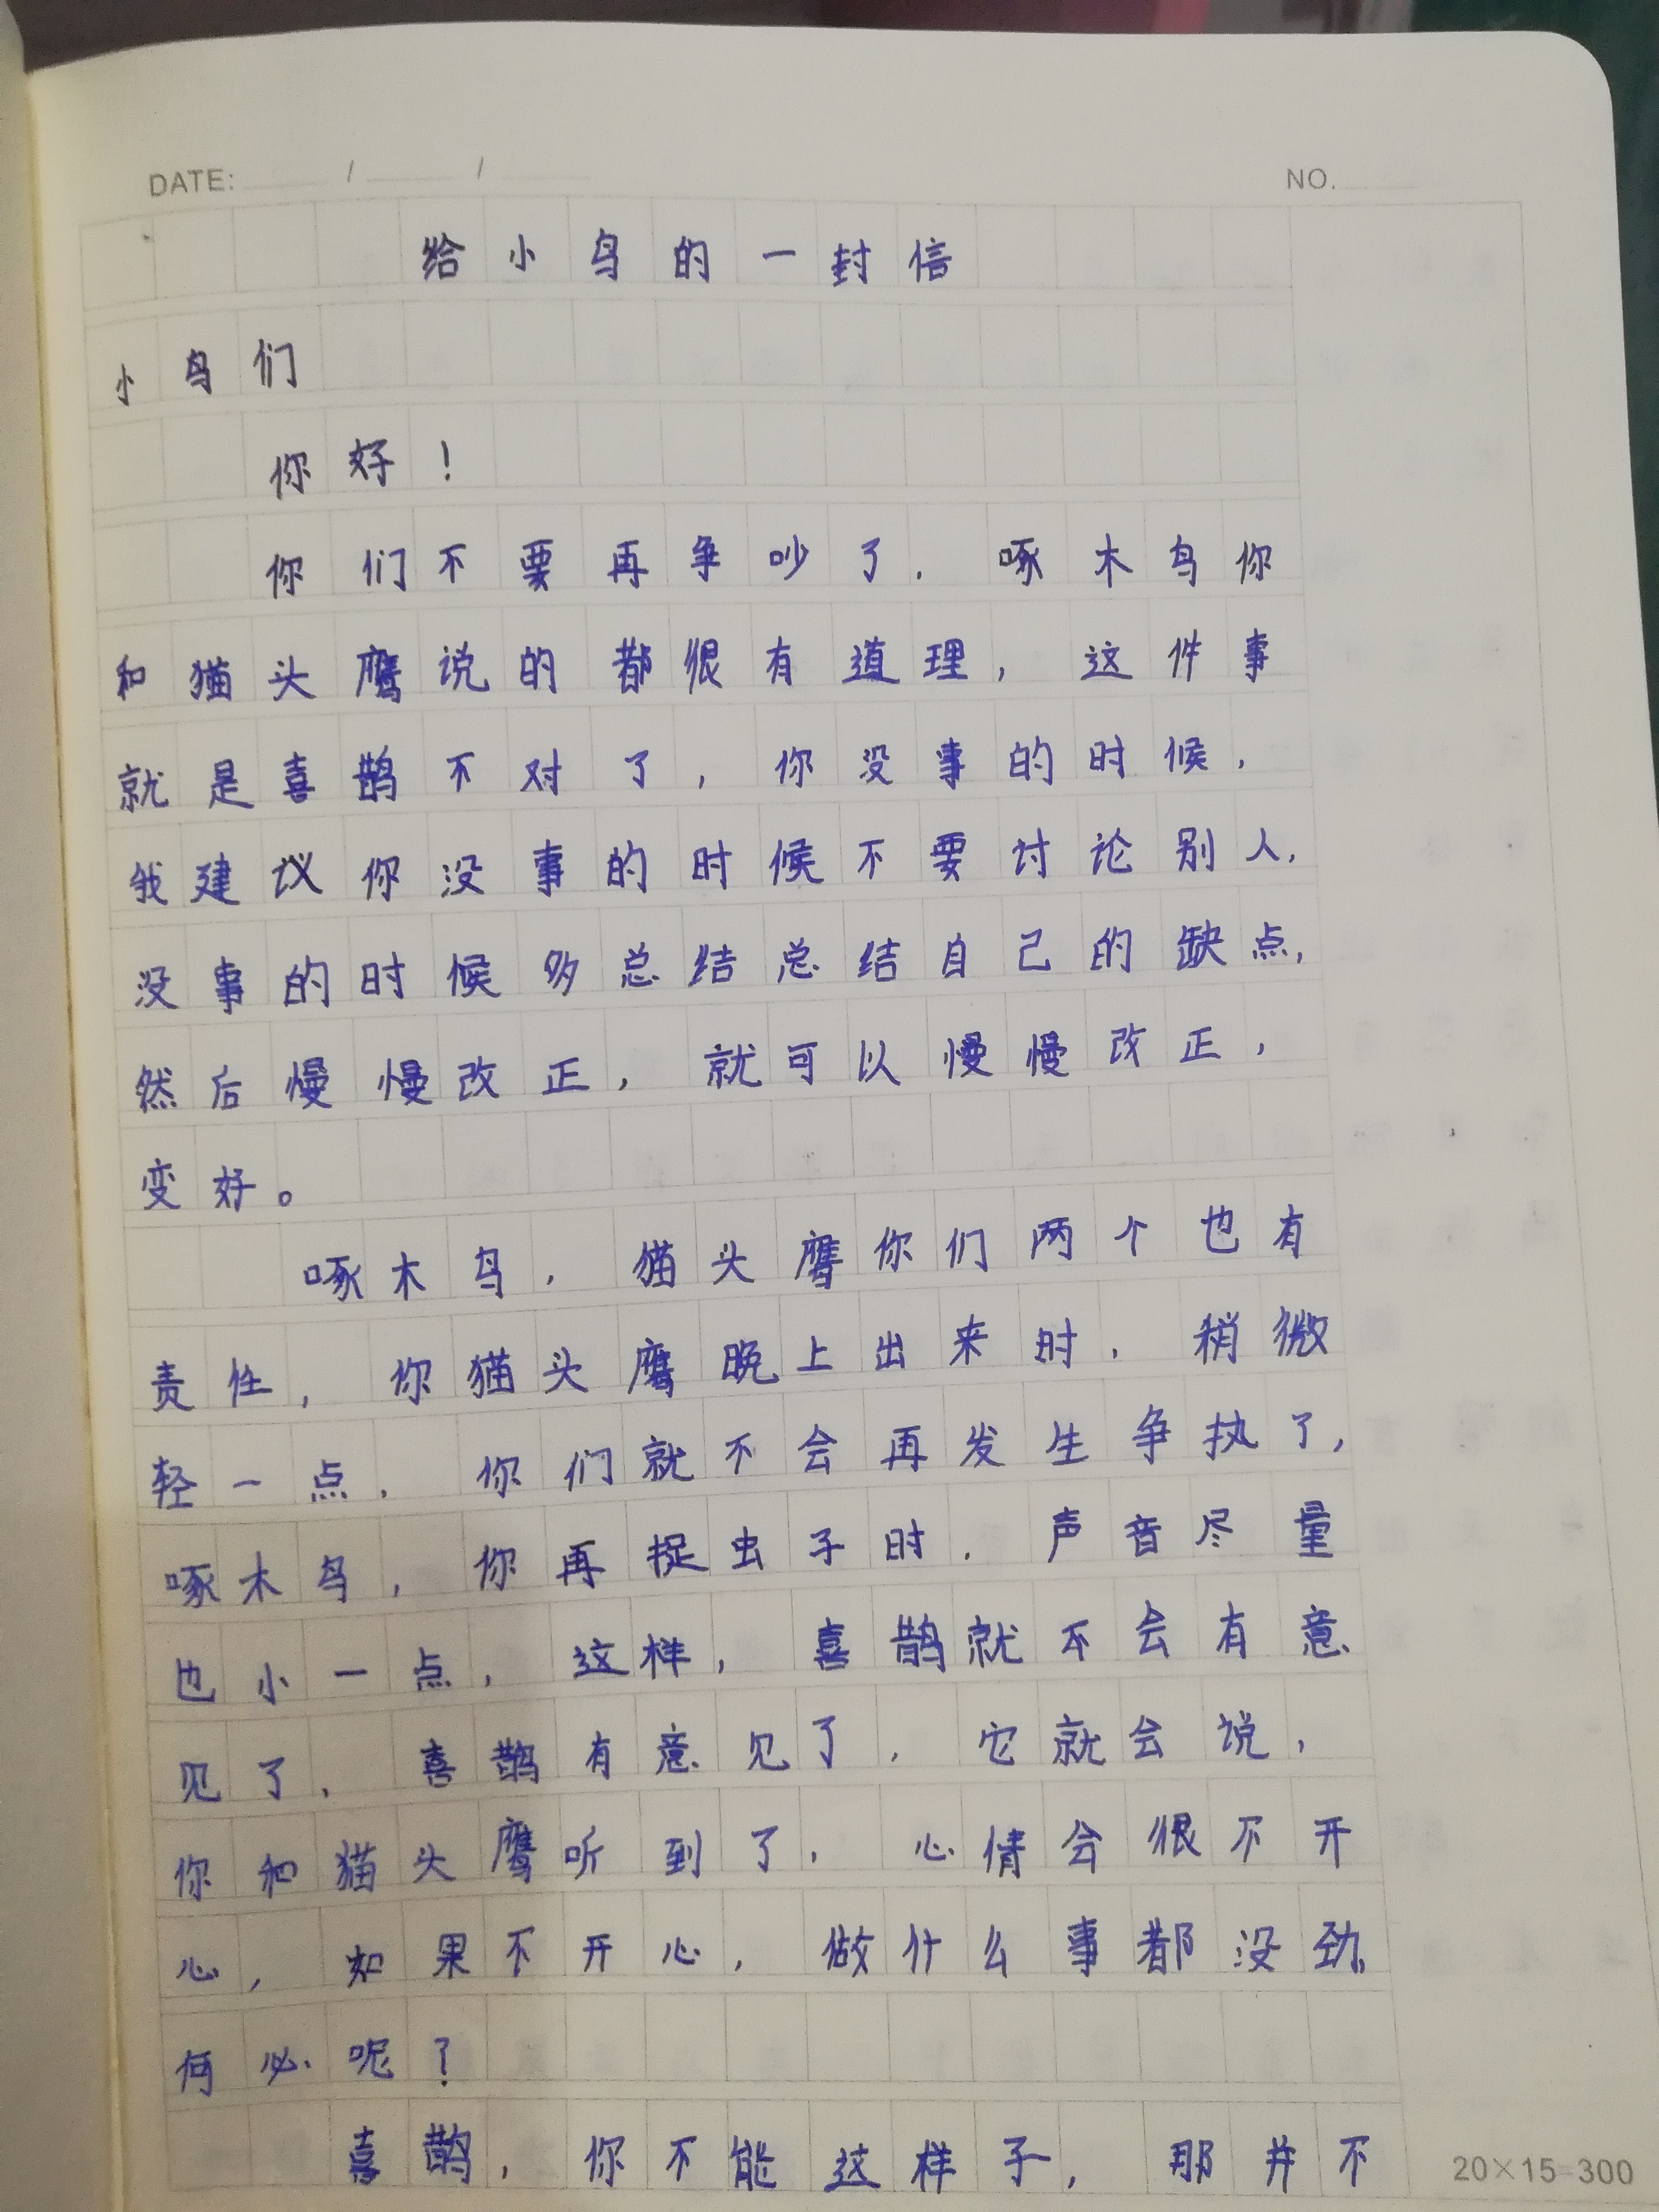 DATE: / /
NO.
给小鸟的一封信
小鸟们
你好！
你们不要再争吵了，啄木鸟你
和猫头鹰说的都很有道理，这件事
就是喜鹊不对了，你没事的时候，
我建议你没事的时候不要讨论别人，
没事的时候多总结总结自己的缺点，
然后慢慢改正，就可以慢慢改正，
变好。
啄木鸟，猫头鹰你们两个也有
责性，你猫头鹰晚上出来时，稍微
轻一点，你们就不会再发生争执了，
啄木鸟，你再捉虫子时，声音尽量
也小一点，这样，喜鹊就不会有意
见了，喜鹊有意见了，它就会说，
你和猫头鹰听到了，心情会很不开
心，如果不开心，做什么事都没劲。
何必呢？
喜鹊，你不能这样子，那并不
20×15=300